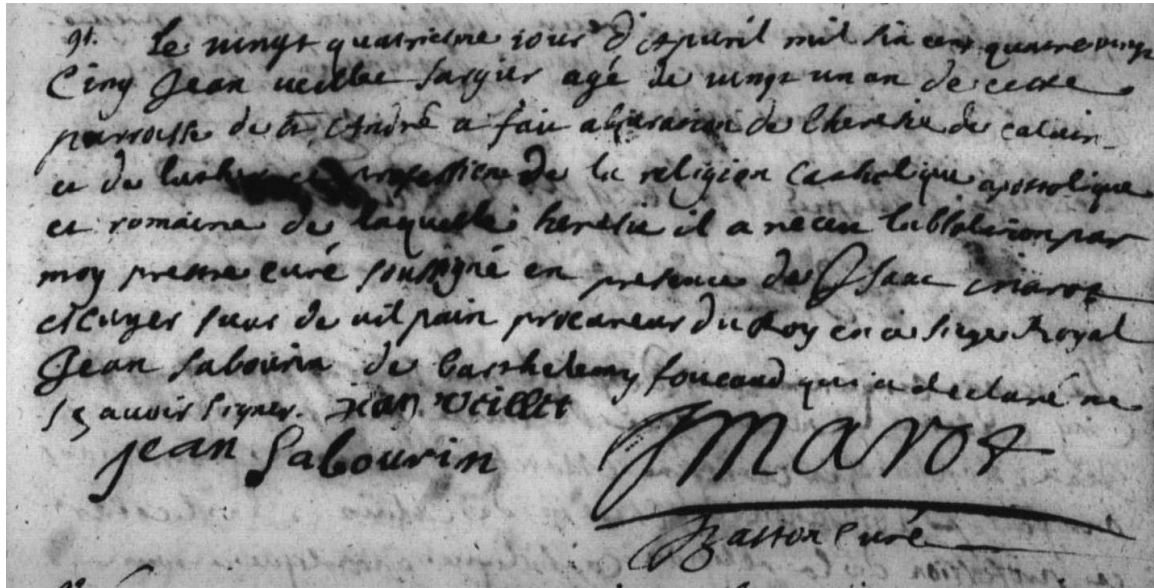 91. Le vingt quatriesme iour d'apvril mil six cens quatre vingt
Cinq Jean veillet sargier agé de vingt un an de cette
parroisse de St André a fait abjuration de lheresie de calvin
et de luther et profession de la religion Catholique apostolique
et romaine de laquelle heresie il a receu labsolution par
moy prestre curé soussigné en presence de Isaac marot
escuyer sieur de vilpain procureur du Roy en ce siege Royal
Jean Sabourin de barthelemy foucaud qui a declaré ne
sçavoir signer. jean veillet
jean Sabourin JMarot
curé